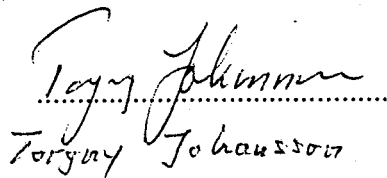 Torgny Johansson
Torgny Johansson